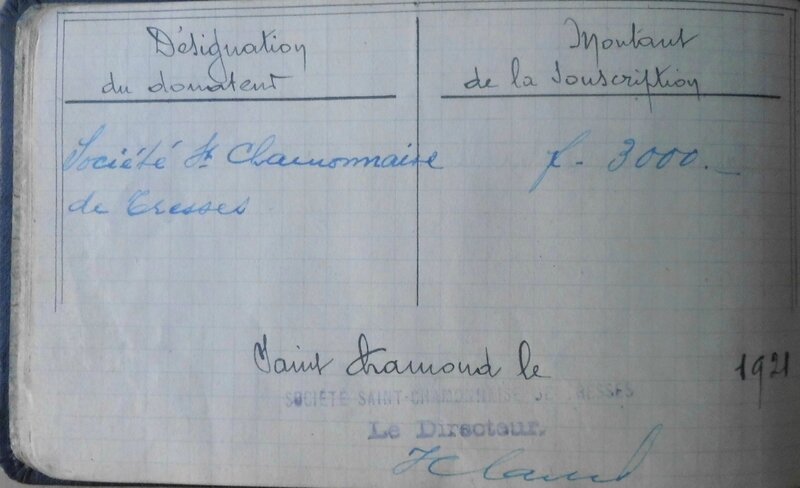 Désignation
du donateur
Montant
de la Souscription
Société St Chamonnaise
de Tresses
f. 3000.-
Saint Chamond le 1921
SOCIÉTÉ SAINT-CHAMONNAISE DE TRESSES
Le Directeur.